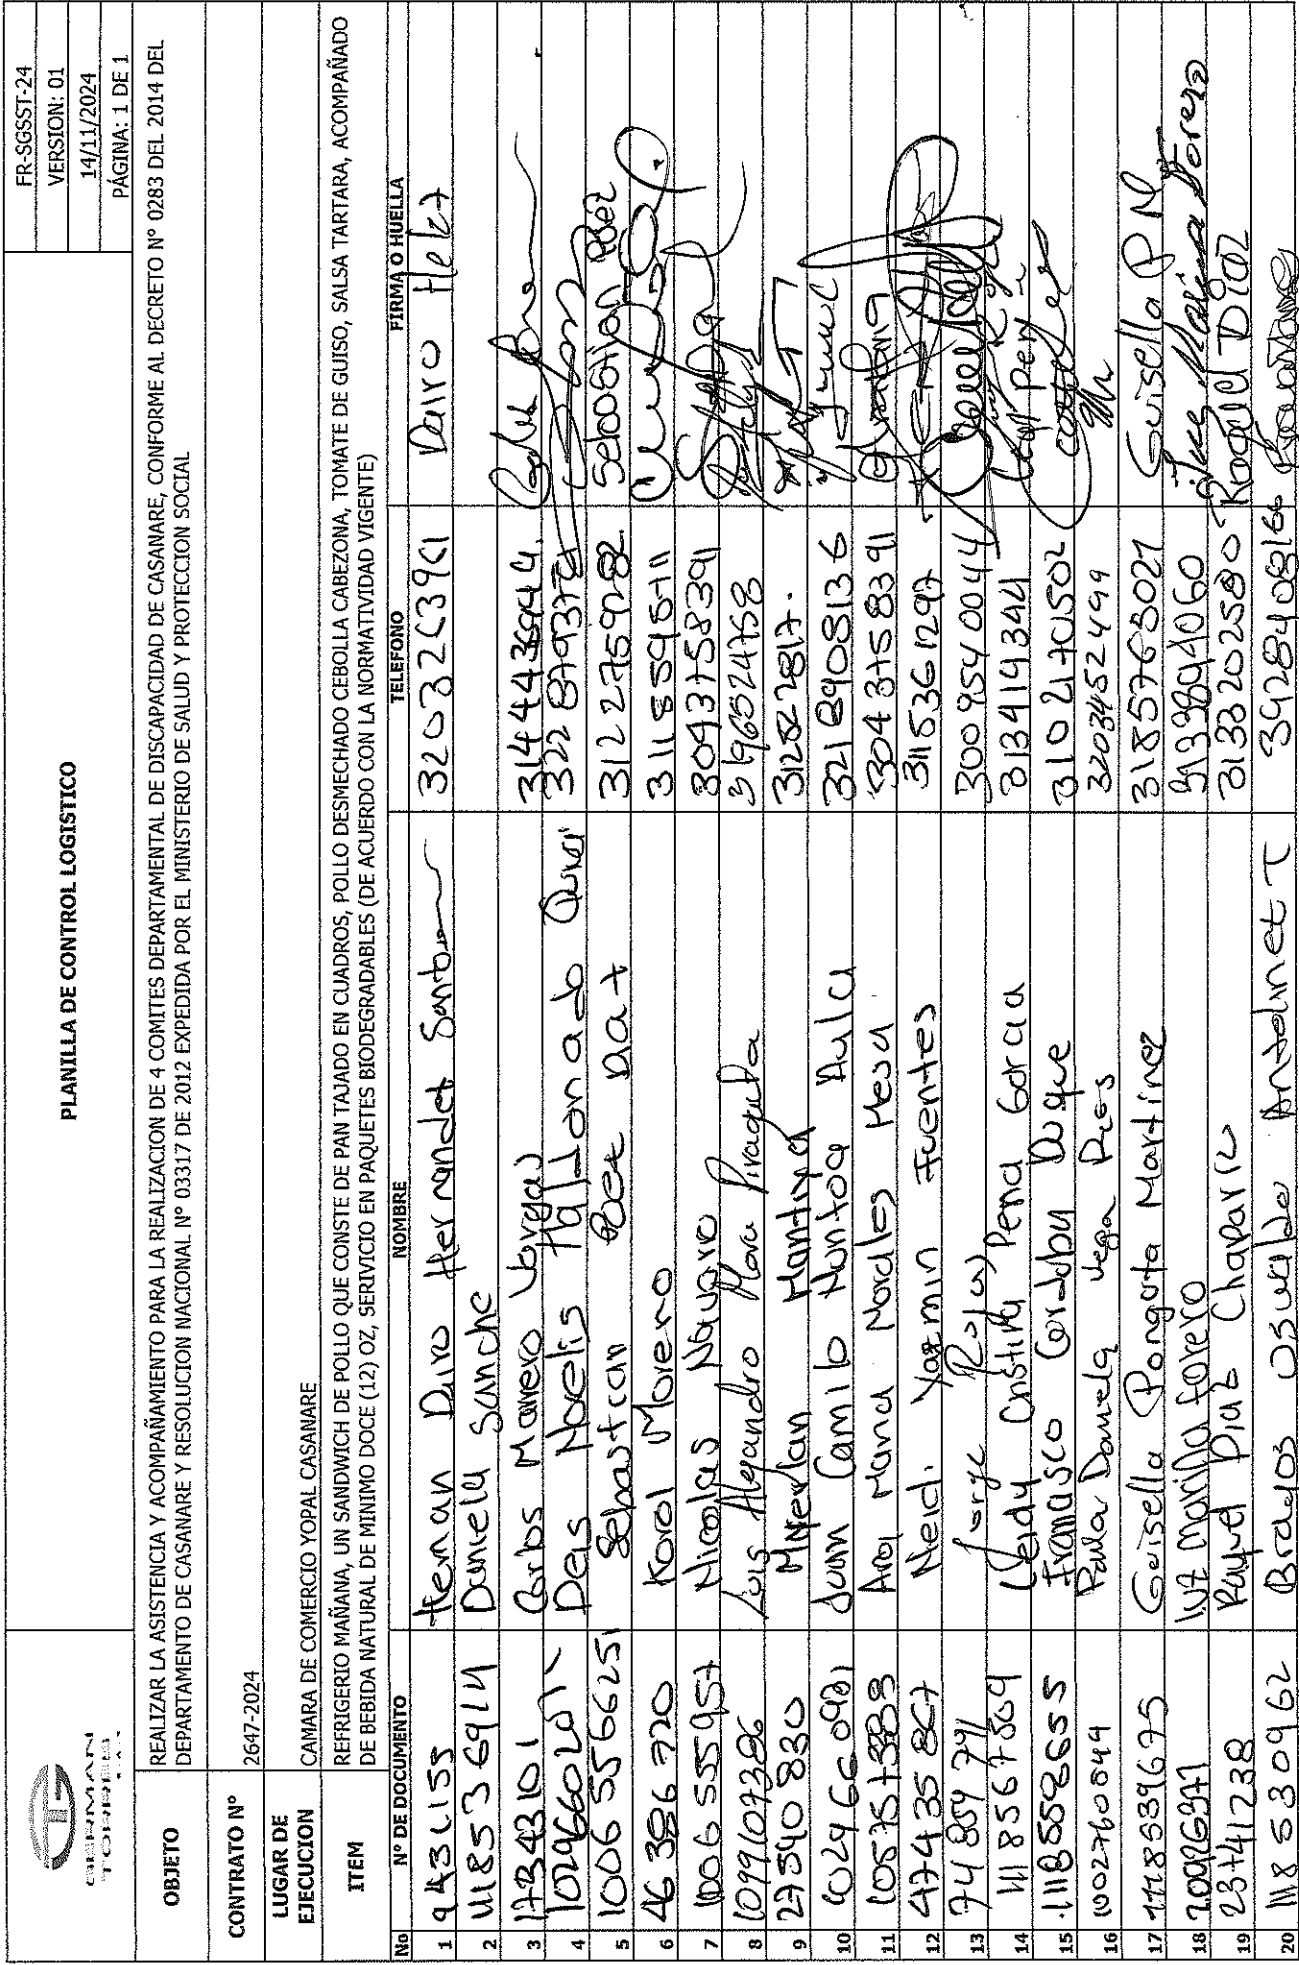 GERMAN
TORRES
PLANILLA DE CONTROL LOGISTICO
FR-SGSST-24
VERSION: 01
14/11/2024
PÁGINA: 1 DE 1
OBJETO
REALIZAR LA ASISTENCIA Y ACOMPAÑAMIENTO PARA LA REALIZACION DE 4 COMITES DEPARTAMENTAL DE DISCAPACIDAD DE CASANARE, CONFORME AL DECRETO N° 0283 DEL 2014 DEL
DEPARTAMENTO DE CASANARE Y RESOLUCION NACIONAL N° 03317 DE 2012 EXPEDIDA POR EL MINISTERIO DE SALUD Y PROTECCION SOCIAL
CONTRATO N° 2647-2024
LUGAR DE
EJECUCION
CAMARA DE COMERCIO YOPAL CASANARE
ITEM
REFRIGERIO MAÑANA, UN SANDWICH DE POLLO QUE CONSTE DE PAN TAJADO EN CUADROS, POLLO DESMECHADO CEBOLLA CABEZONA, TOMATE DE GUISO, SALSA TARTARA, ACOMPAÑADO
DE BEBIDA NATURAL DE MINIMO DOCE (12) OZ, SERIVICIO EN PAQUETES BIODEGRADABLES (DE ACUERDO CON LA NORMATIVIDAD VIGENTE)
No N° DE DOCUMENTO NOMBRE TELEFONO FIRMA O HUELLA
1 9431155 Hernan Dairo Hernandez 3203263961 Dairo
2 1118536914 Daniela Sanche
3 17343101 Carlos Marrero Vargas
4 Deis Norelis Maldonado
5 1006556625 Sebastian Paez Diaz 3122759282 Sebastian Páez
6 46386720 Karol Moreno
7 1006555957 Nicolas Navarro 3043758391
8 1099107386 Luis Alejandro Mora Piraquita 3196524758
9 27590830 Mantilla 312822817.
10 Juan Camilo Montoa 3218908136
11 1057578388 Ana Maria Morales Mesa 3043758391
12 47435867 Neidi Yazmin Fuentes 3115361297
13 74859791 Jorge Rojas 3009540044
14 1118567309 Leidy Cristina Pena Garcia 3134143441 Leidy Pena
15 1118558655 Francisco Cordoby Duque 3102170502
16 1002760849 Paula Daniela Vega Rios 3203452499
17 1118539675 Geisella Pongota Martinez 3185768021 Guisella P M
18 Luz Marina Forero 3133894060 Luz Marina Forero
19 23741238 Raquel Diaz Chaparro 3133202580 Raquel Diaz
20 1118530962 Brayos Osvaldo Antolinez T